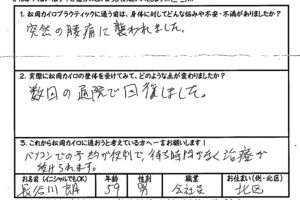 1. 松岡カイロプラクティックに通う前は、身体に対してどんな悩みや不安・不満がありましたか?
突然の腰痛に襲われました。
2. 実際に松岡カイロの整体を受けてみて、どのような点が変わりましたか?
数回の通院で回復しました。
3. これから松岡カイロに通おうと考えている方へ一言お願いします!
パソコンでの予約が便利で、待ち時間がなく治療が
受けられます。
お名前(イニシャルでもOK) 年齢 性別 職業 お住まい(例・北区)
長谷川 朗 59 男 会社員 北区